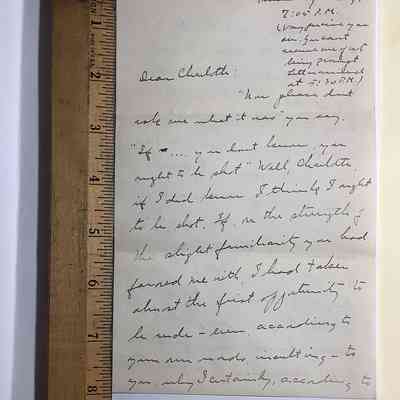 7:05 P.M.
(Now please don't
at 5:30 P.M.)
Dear Charlotte:
"Now please don't
ask me what it was" you say.
"If .... you don't know, you
ought to be shot" Well, Charlotte,
if I did know I think I ought
to be shot. If, on the strength of
the slight familiarity you had
favored me with, I had taken
almost the first opportunity to
be rude - even, according to
your own words, insulting - to
you, why I certainly, according to
1
2
3
4
5
6
7
8